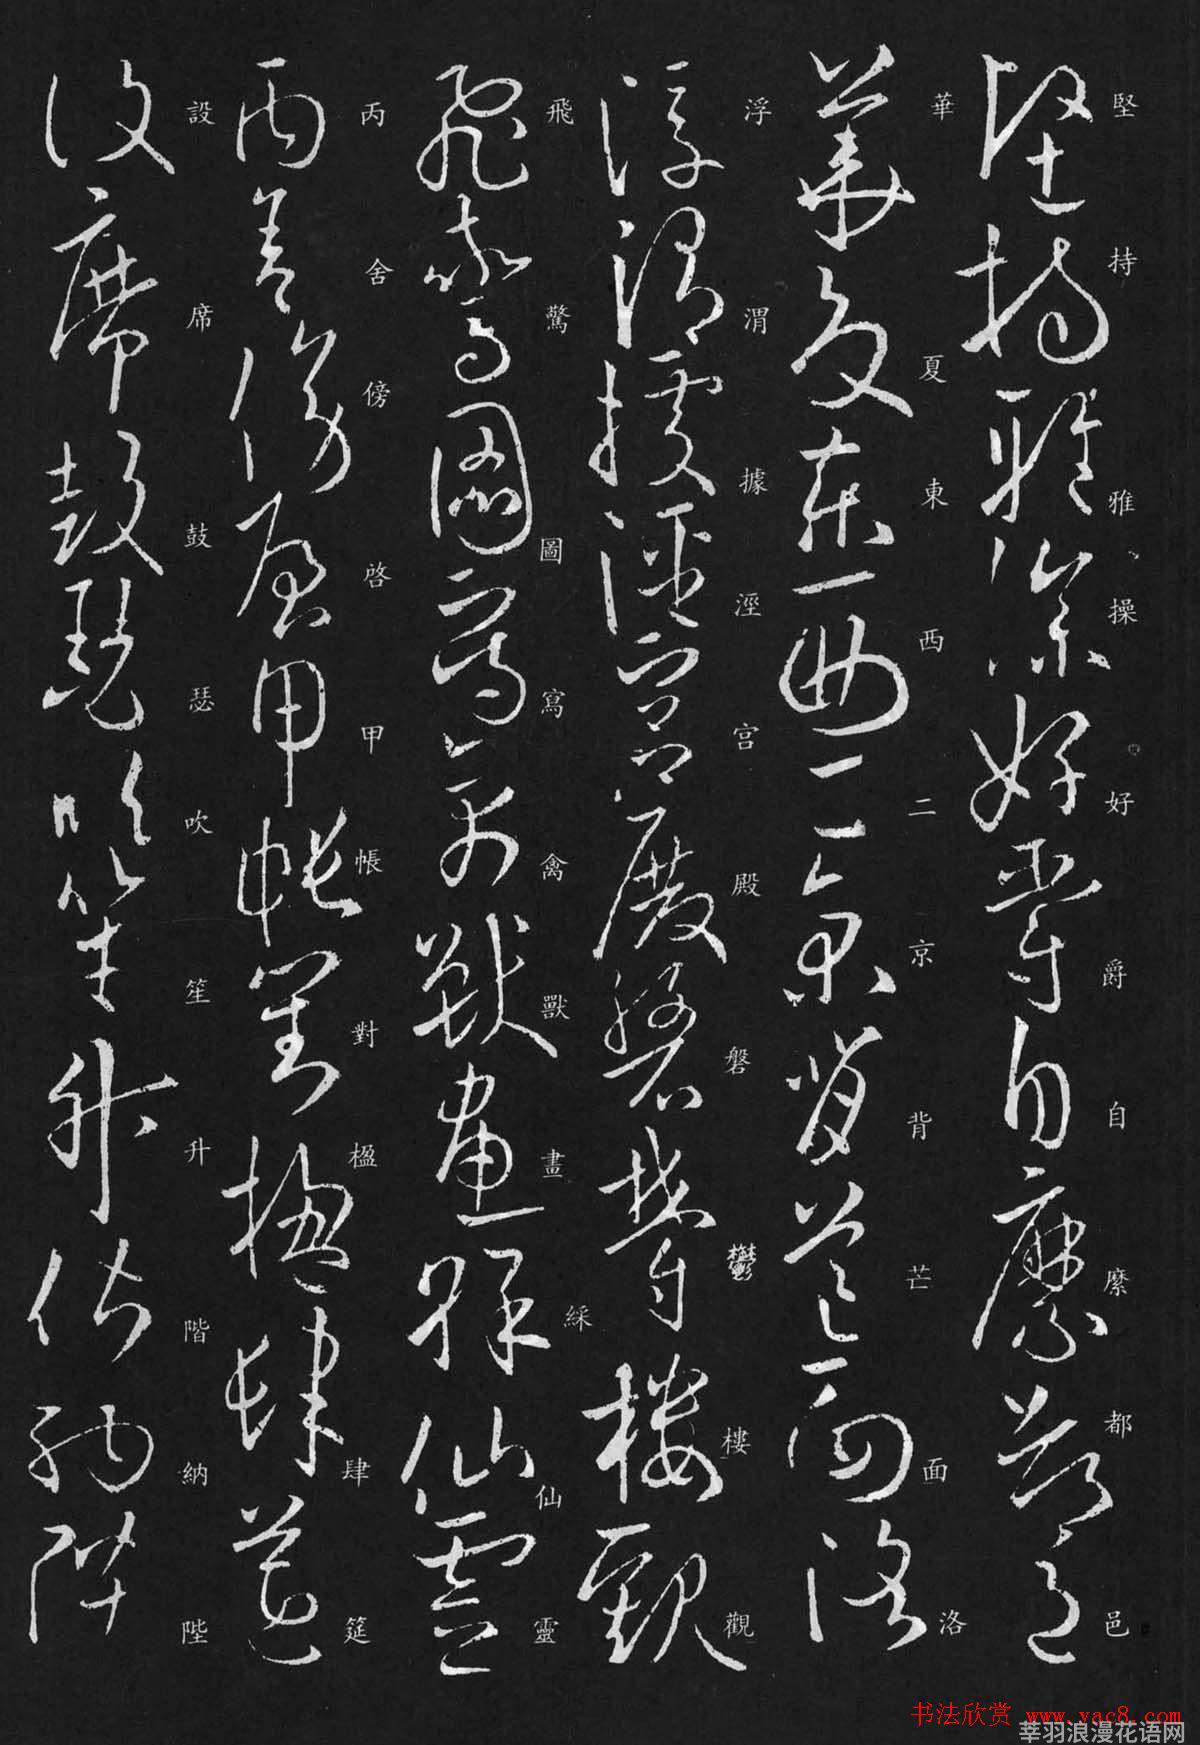 堅持雅操好爵自縻都邑
華夏東西二京背芒面洛
浮渭據涇宮殿磐鬱樓觀
飛驚圖寫禽獸畫綵仙靈
丙舍傍啓甲帳對楹肆筵
設席鼓瑟吹笙升階納陛
书法欣赏 www.yac8.com
莘羽浪漫花语网